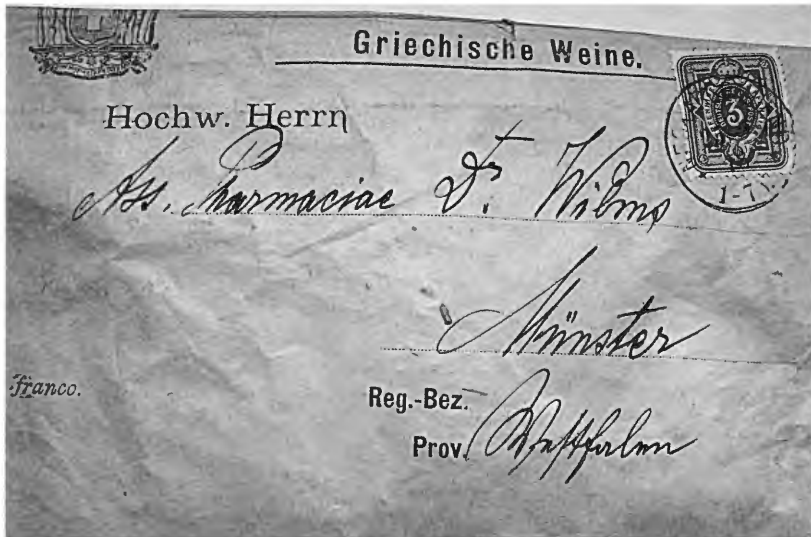 Griechische Weine.
3
Hochw. Herrn
Ass. Pharmaciae Dr. Wilms
1-7
Münster
franco.
Reg.-Bez.
Prov. Westfalen